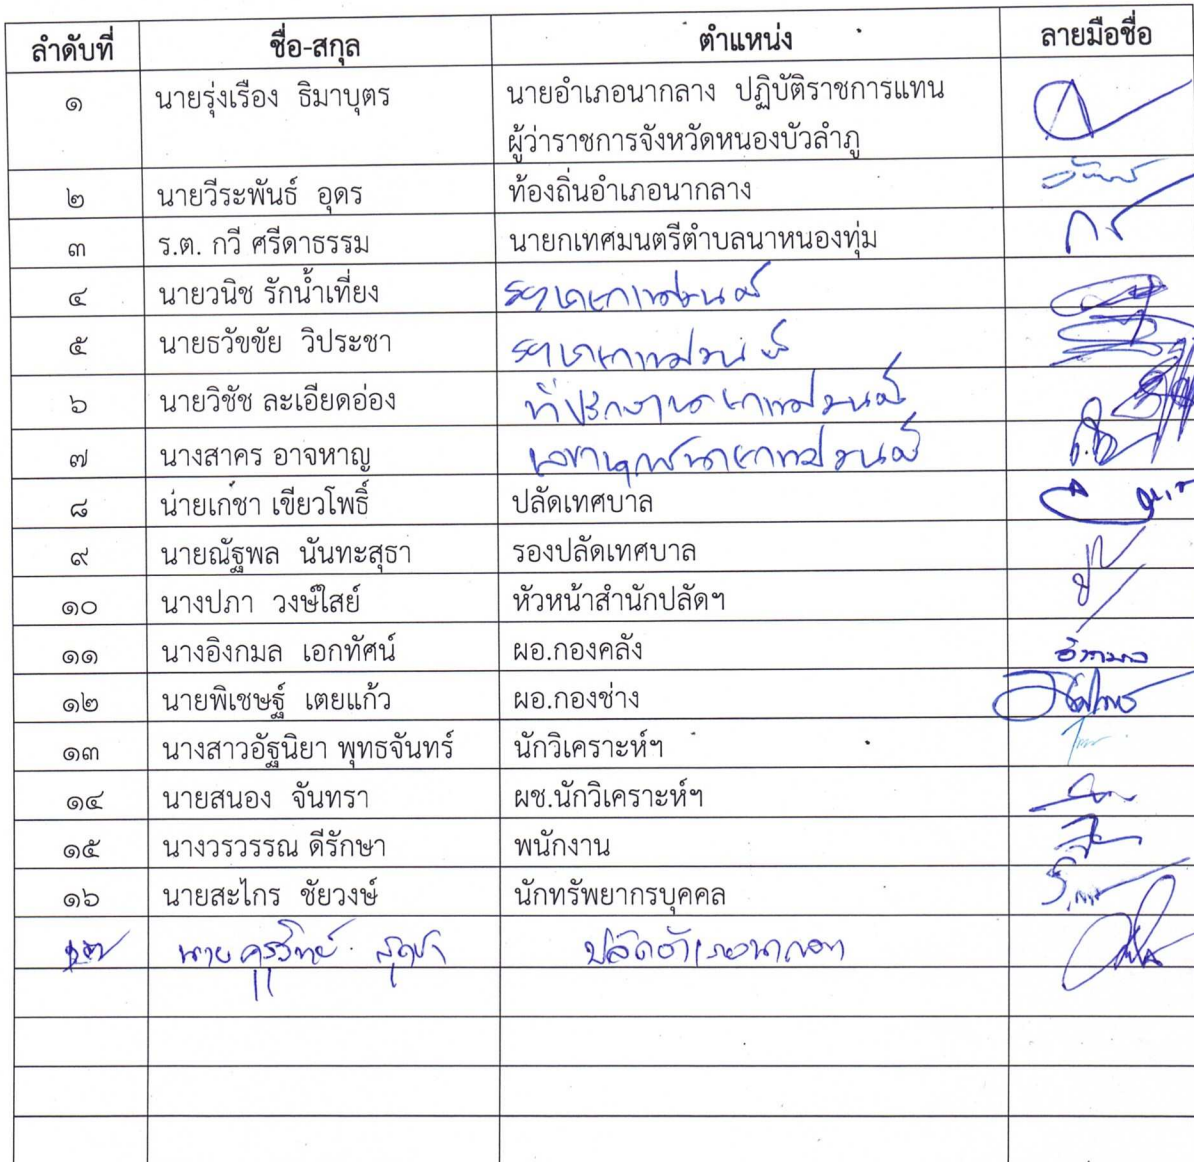 ลำดับที่ ชื่อ-สกุล ตำแหน่ง ลายมือชื่อ
๑ นายรุ่งเรือง ธิมาบุตร นายอำเภอนากลาง ปฏิบัติราชการแทน
ผู้ว่าราชการจังหวัดหนองบัวลำภู
๒ นายวีระพันธ์ อุดร ท้องถิ่นอำเภอนากลาง
๓ ร.ต. กวี ศรีดาธรรม นายกเทศมนตรีตำบลนาหนองทุ่ม
๔ นายวนิช รักน้ำเที่ยง รองนายกเทศมนตรี
๕ นายธวัขขัย วิประชา รองนายกเทศมนตรี
๖ นายวิชัช ละเอียดอ่อง ที่ปรึกษานายกเทศมนตรี
๗ นางสาคร อาจหาญ เลขานุการนายกเทศมนตรี
๘ น่ายเก่ชา เขียวโพธิ์ ปลัดเทศบาล
๙ นายณัฐพล นันทะสุธา รองปลัดเทศบาล
๑๐ นางปภา วงษ์ใสย์ หัวหน้าสำนักปลัดฯ
๑๑ นางอิงกมล เอกทัศน์ ผอ.กองคลัง อิงกมล
๑๒ นายพิเชษฐ์ เตยแก้ว ผอ.กองช่าง
๑๓ นางสาวอัฐนิยา พุทธจันทร์ นักวิเคราะห์ฯ
๑๔ นายสนอง จันทรา ผช.นักวิเคราะห์ฯ
๑๕ นางวรวรรณ ดีรักษา พนักงาน
๑๖ นายสะไกร ชัยวงษ์ นักทรัพยากรบุคคล
๑๗ นาย ปลัดอำเภอนากลาง